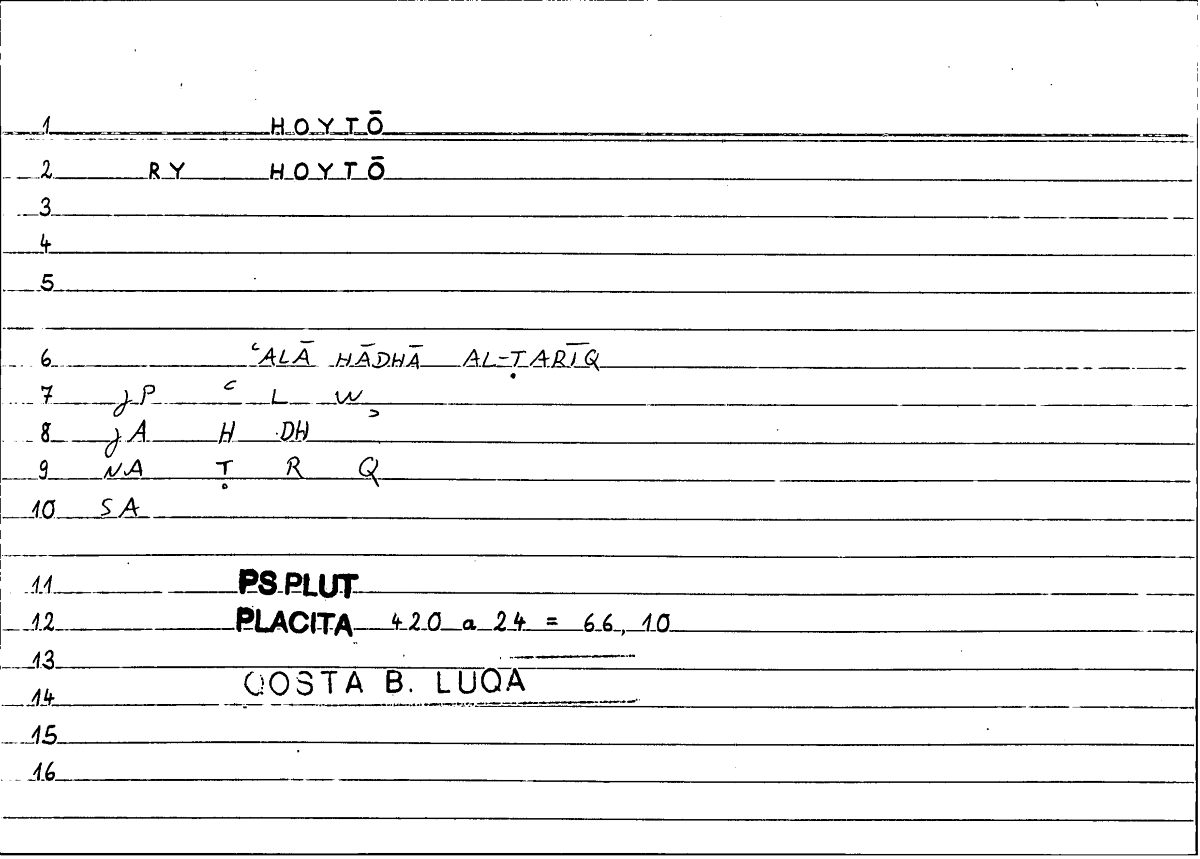 1 HOYTŌ
2 RY HOYTŌ
3
4
5
6 ʿALĀ HĀDHĀ AL-ṬARĪQ
7 jP ʿ L Wʾ
8 jA H DH
9 NA Ṭ R Q
10 SA
11 PS.PLUT
12 PLACITA 420 a 24 = 66, 10
13
14 QOSTA B. LUQA
15
16